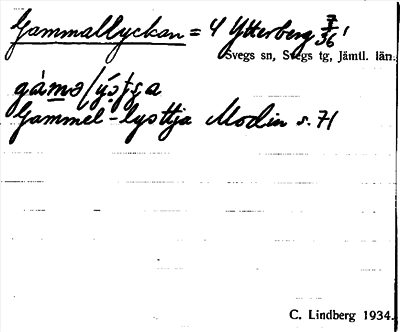 Gammallyckan = 4 Ytterberg 7/36 1
Svegs sn, Svegs tg, Jämtl. län.
Gammel-lyottja Modin s. 71
C. Lindberg 1934.